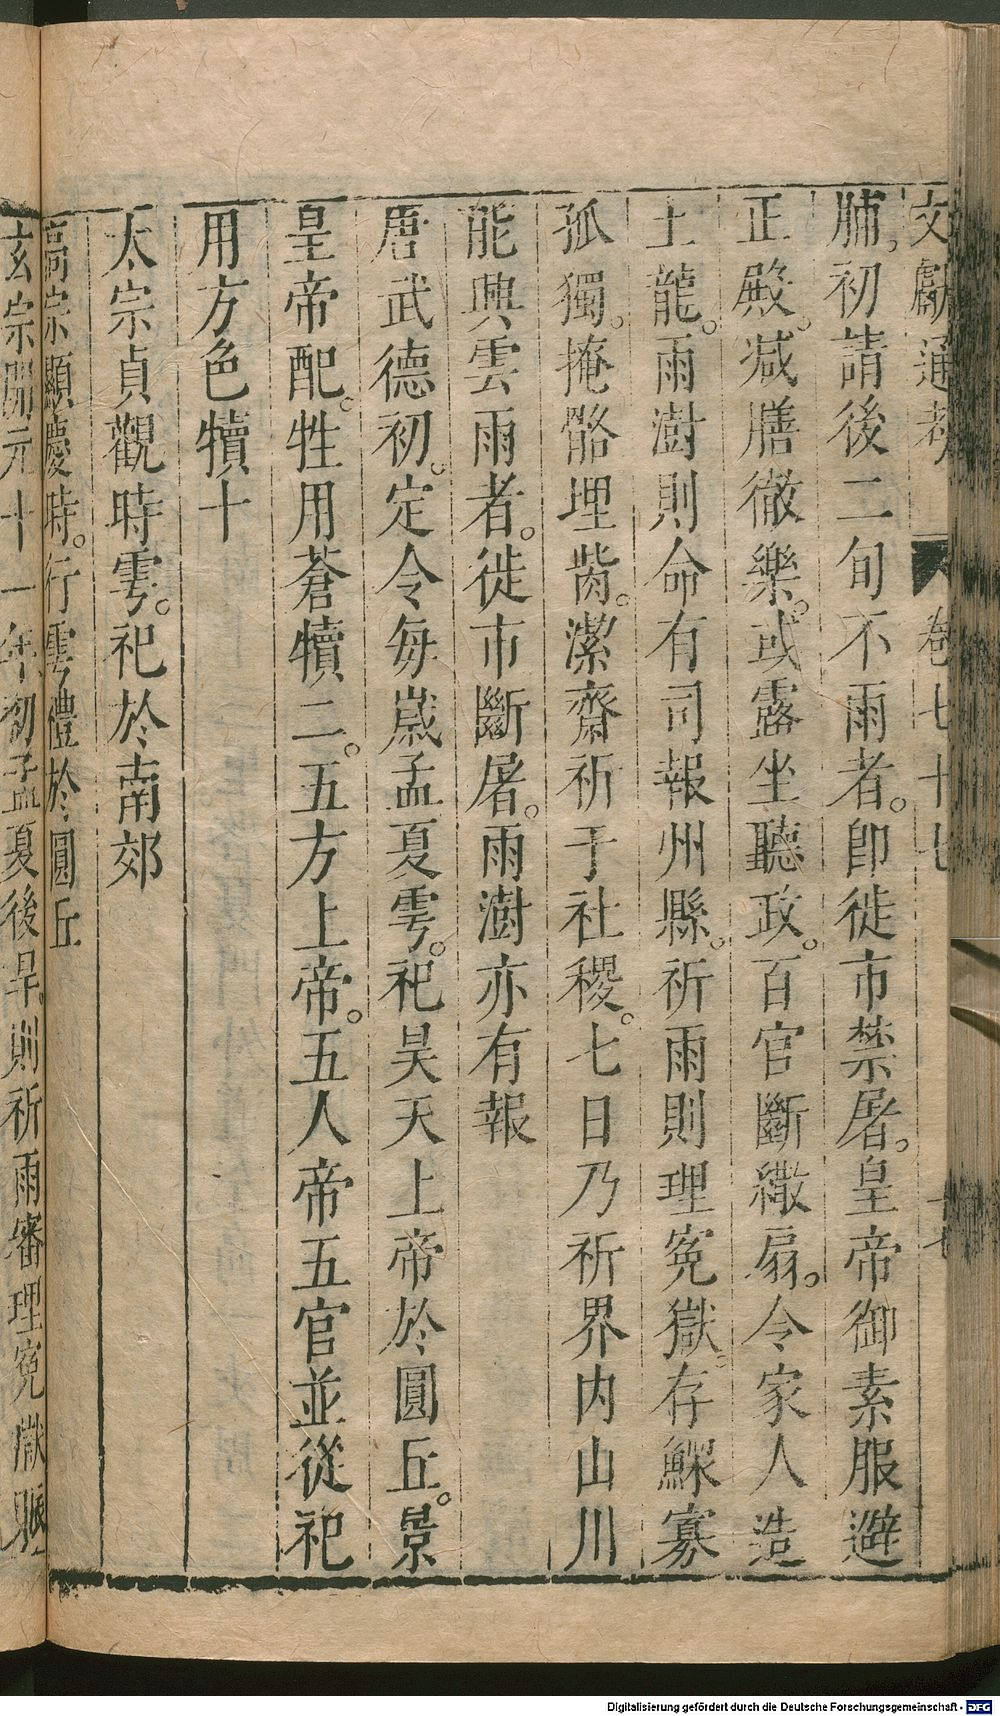 文獻通考 卷七十七 十七
脯初請後二旬不雨者。即徙市禁屠。皇帝御素服避
正殿。減膳徹樂。或露坐聽政。百官斷繖扇。令家人造
土龍。雨澍則命有司報州縣。祈雨則理寃獄。存鰥寡
孤獨。掩骼埋胔。潔齋祈于社稷。七日乃祈界内山川
能興雲雨者。徙市斷屠。雨澍亦有報
唐武德初。定令每歲孟夏雩。祀昊天上帝於圓丘。景
皇帝配。牲用蒼犢二。五方上帝。五人帝五官並從祀
用方色犢十
太宗貞觀時雩。祀於南郊
高宗顯慶時。行雩禮於圓丘
玄宗開元十一年初孟夏後旱。則祈雨審理寃獄賑
Digitalisierung gefördert durch die Deutsche Forschungsgemeinschaft - DFG